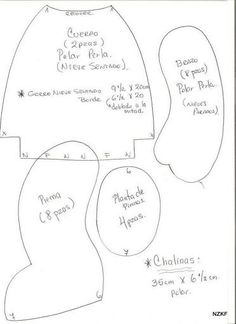 CUERPO
(2 pzas)
Polar Perla.
(NIEVE SENTADO)
* GORRO NIEVE SENTADO
Borde
9½ X 20cm
6½ X 20
*doblado a la mitad.
X
X
N F N N F N
BRAZO
(8 pzas)
Polar Perla
(NIEVES
PARADOS)
Pierna
(8 pzas)
Y
6
6
Planta de
Piernas
4 pzas.
Y
* Chalinas:
35cm X 6½cm
Polar.
NZKF